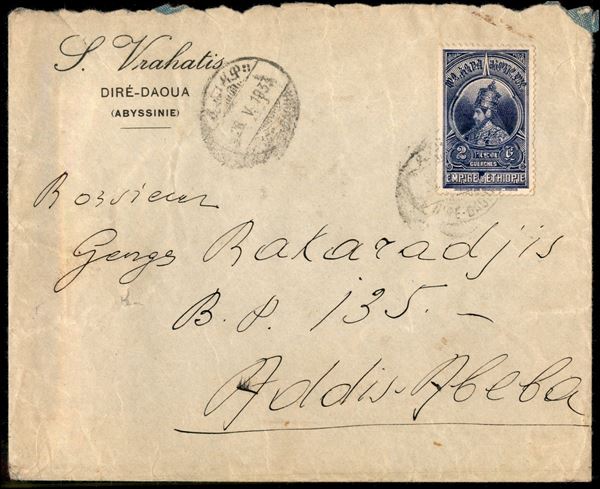 S. Vrahatis
DIRÉ-DAOUA
(ABYSSINIE)
26 V 193
2
GUERCHES
EMPIRE ETHIOPIE
Monsieur
Georges Rakaradjis
B.P. 135.-
Addis-Abeba